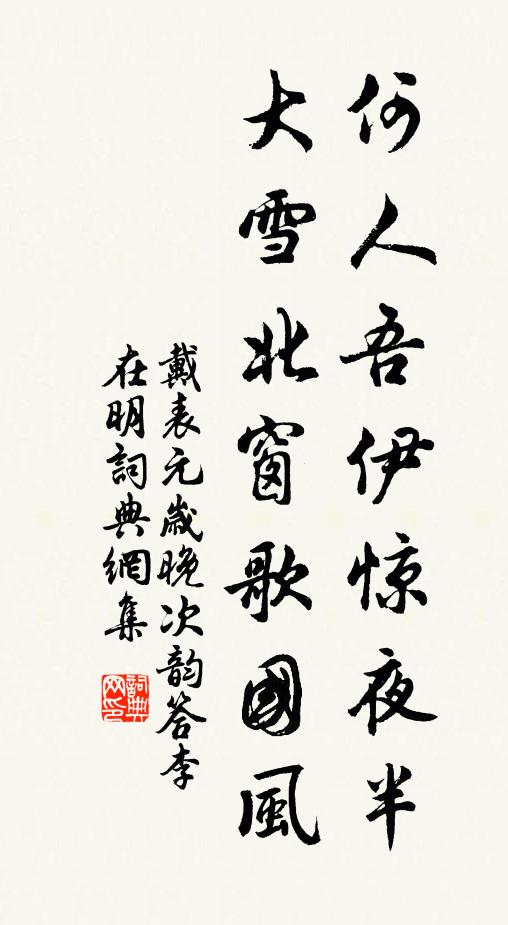 何人吾伊惊夜半
大雪北窗歌國風
戴表元歲晚次韵答李
在明詞典網集
詞典
网印